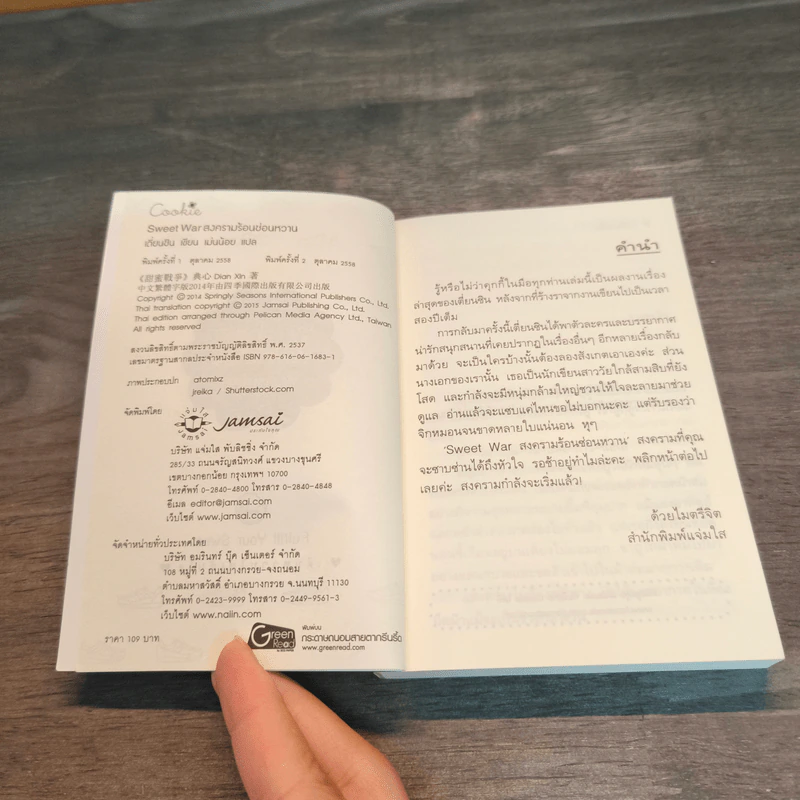 Cookie
Sweet War สงครามร้อนซ่อนหวาน
เตี่ยนซิน เขียน เม่นน้อย แปล
พิมพ์ครั้งที่ 1 ตุลาคม 2558 พิมพ์ครั้งที่ 2 ตุลาคม 2558
《甜蜜戰爭》典心 Dian Xin 著
中文繁體字版2014年由四季國際出版有限公司出版
Copyright © 2014 Springly Seasons International Publishers Co., Ltd.
Thai translation copyright © 2015 Jamsai Publishing Co., Ltd.
Thai edition arranged through Pelican Media Agency Ltd., Taiwan
All rights reserved
สงวนลิขสิทธิ์ตามพระราชบัญญัติลิขสิทธิ์ พ.ศ. 2537
เลขมาตรฐานสากลประจำหนังสือ ISBN 978-616-06-1683-1
ภาพประกอบปก atomixz
jreika / Shutterstock.com
จัดพิมพ์โดย
แจ่มใส
Jamsai
jamsai
บริษัท แจ่มใส พับลิชชิ่ง จำกัด
285/33 ถนนจรัญสนิทวงศ์ แขวงบางขุนศรี
เขตบางกอกน้อย กรุงเทพฯ 10700
โทรศัพท์ 0-2840-4800 โทรสาร 0-2840-4848
อีเมล editor@jamsai.com
เว็บไซต์ www.jamsai.com
จัดจำหน่ายทั่วประเทศโดย
บริษัท อมรินทร์ บุ๊ค เซ็นเตอร์ จำกัด
108 หมู่ที่ 2 ถนนบางกรวย-จงถนอม
ตำบลมหาสวัสดิ์ อำเภอบางกรวย จ.นนทบุรี 11130
โทรศัพท์ 0-2423-9999 โทรสาร 0-2449-9561-3
เว็บไซต์ www.naiin.com
ราคา 109 บาท
Green Read
พิมพ์บน
กระดาษถนอมสายตากรีนรี้ด
www.greenread.com
คำนำ
รู้หรือไม่ว่าคุกกี้ในมือทุกท่านเล่มนี้เป็นผลงานเรื่อง
ล่าสุดของเตี่ยนซิน หลังจากที่ร้างราจากงานเขียนไปเป็นเวลา
สองปีเต็ม
การกลับมาครั้งนี้เตี่ยนซินได้พาตัวละครและบรรยากาศ
น่ารักสนุกสนานที่เคยปรากฏในเรื่องอื่นๆ อีกหลายเรื่องกลับ
มาด้วย จะเป็นใครบ้างนั้นต้องลองสังเกตเอาเองค่ะ ส่วน
นางเอกของเรานั้น เธอเป็นนักเขียนสาววัยใกล้สามสิบที่ยัง
โสด และกำลังจะมีหนุ่มกล้ามใหญ่ชวนให้ใจละลายมาช่วย
ดูแล อ่านแล้วจะแซบแค่ไหนขอไม่บอกนะคะ แต่รับรองว่า
จิกหมอนจนขาดหลายใบแน่นอน หุๆ
'Sweet War สงครามร้อนซ่อนหวาน' สงครามที่คุณ
จะซาบซ่านได้ถึงหัวใจ รอช้าอยู่ทำไมล่ะคะ พลิกหน้าต่อไป
เลยค่ะ สงครามกำลังจะเริ่มแล้ว!
ด้วยไมตรีจิต
สำนักพิมพ์แจ่มใส